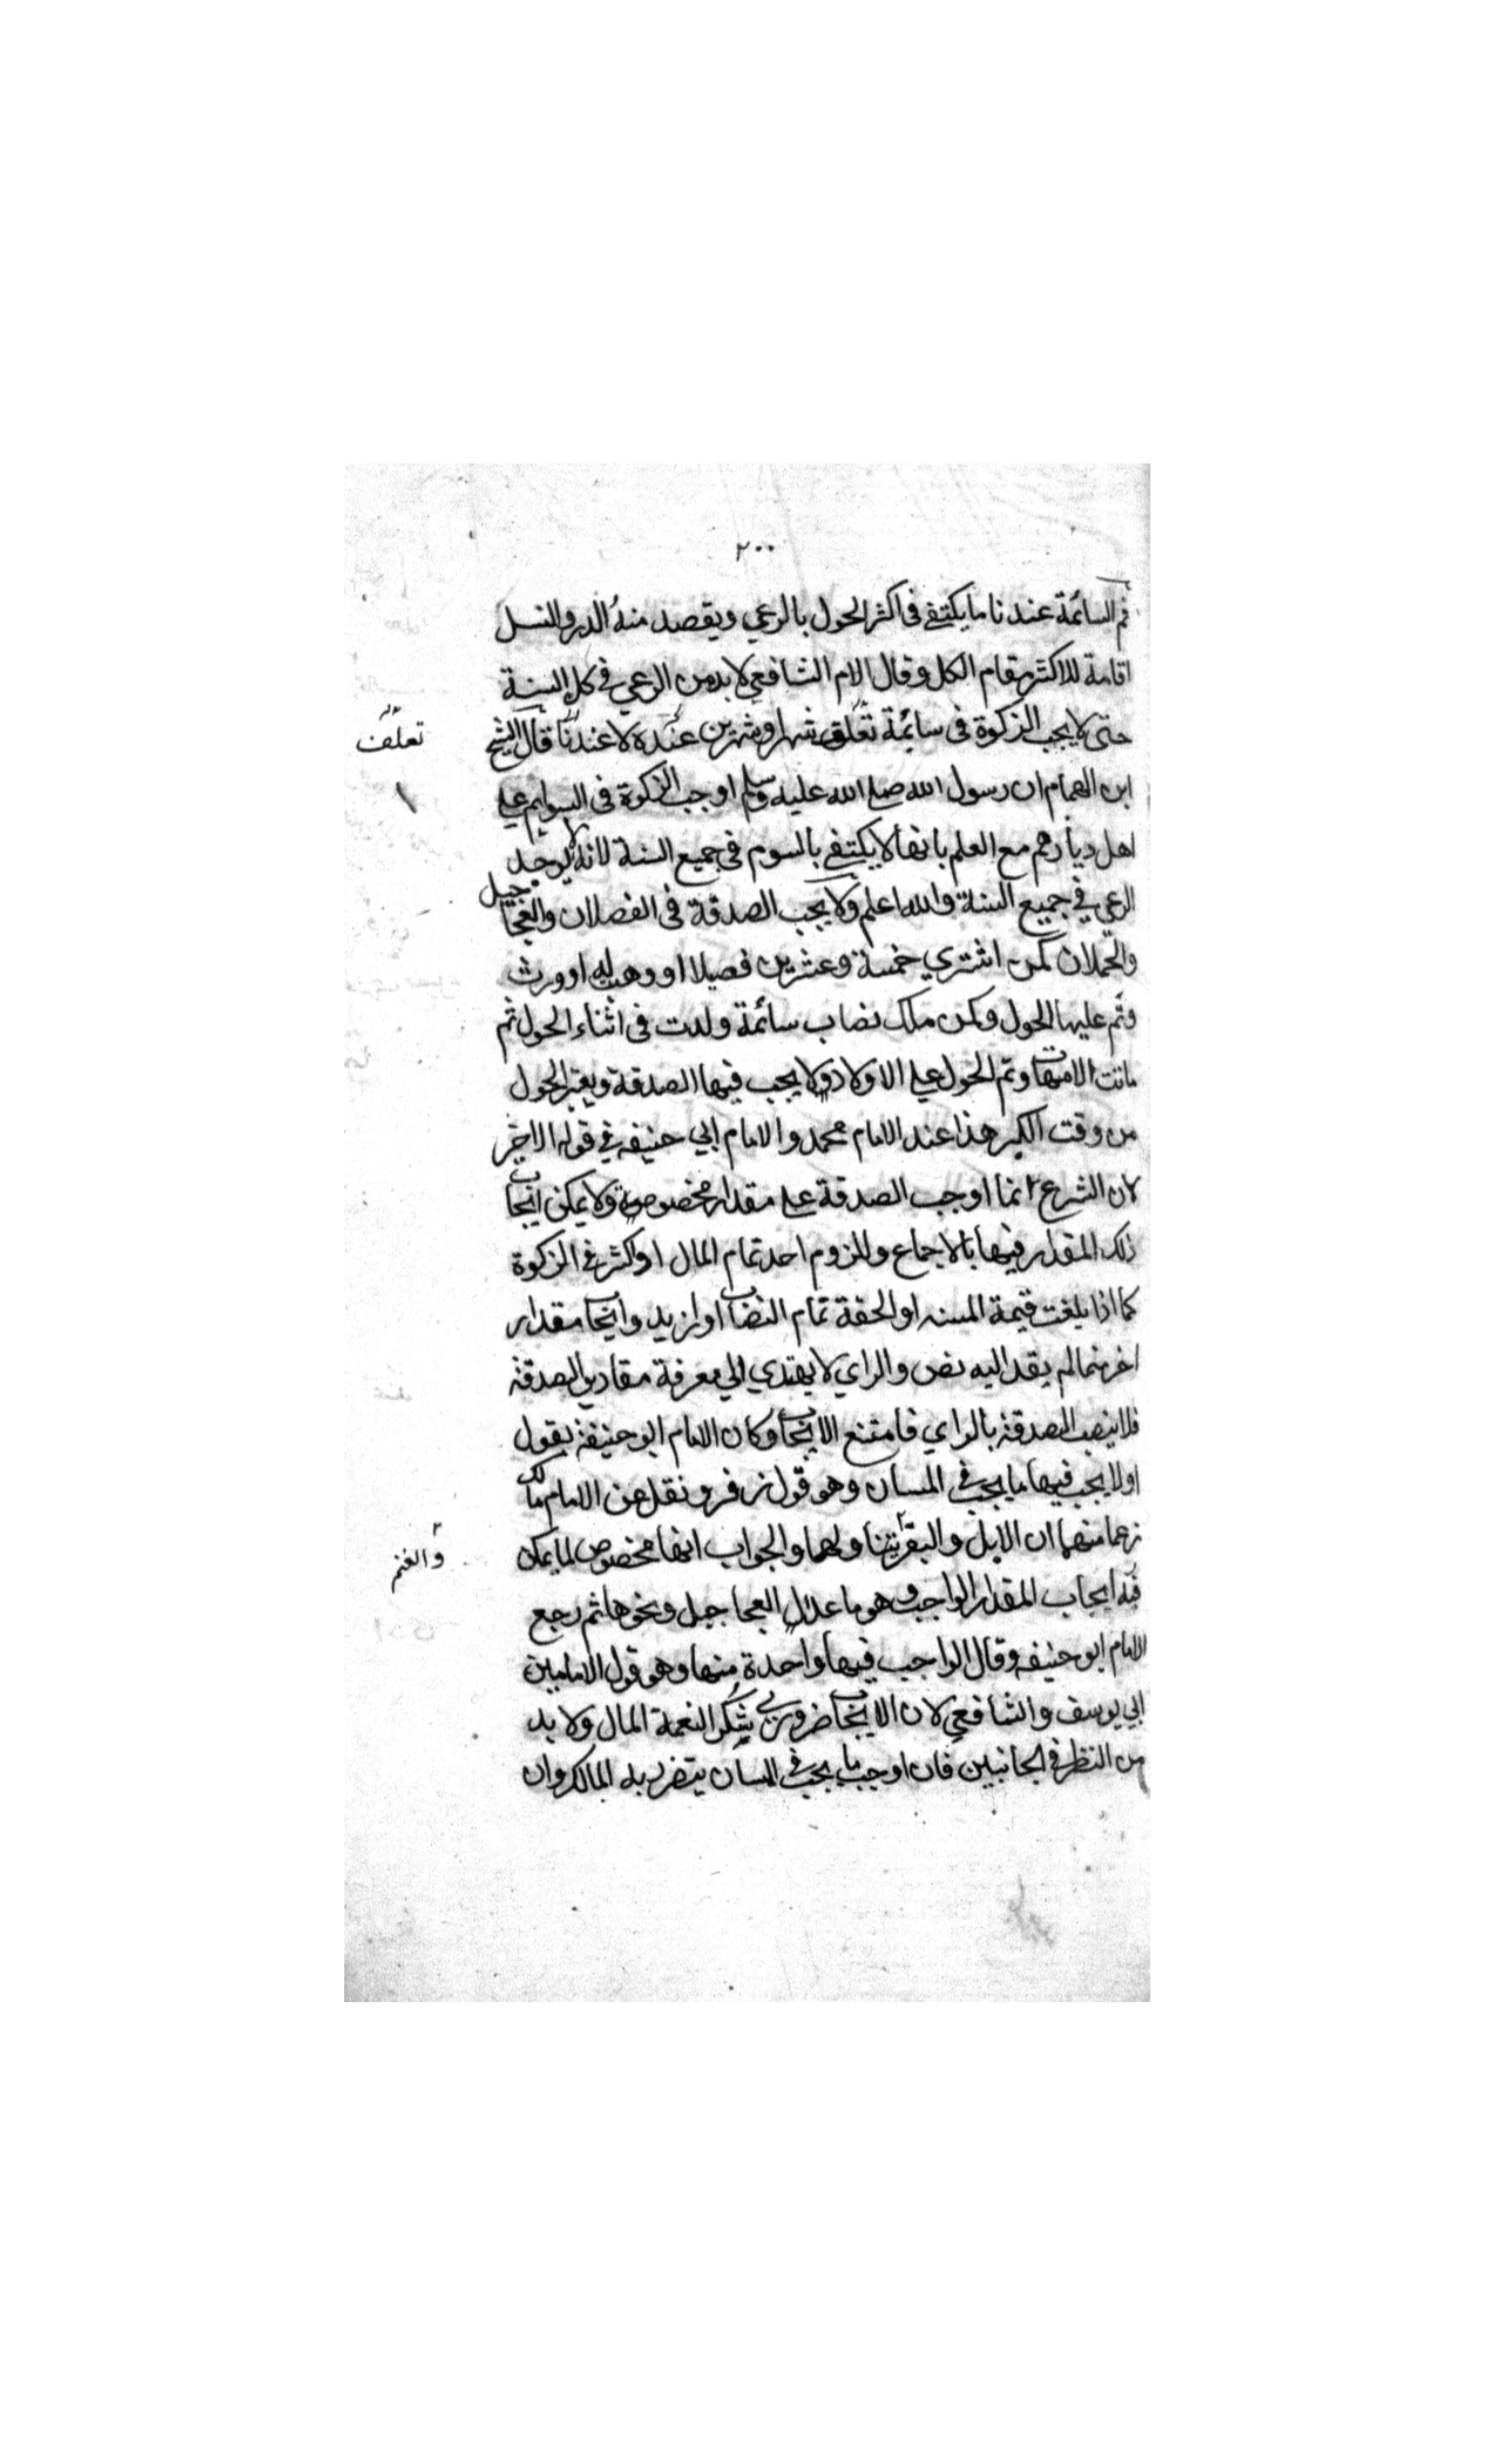 ٢٠٠
ثم السائمة عندنا ما يكتفى فى اكثر الحول بالرعي ويقصد منه الدر والنسل
اقامة للاكثر مقام الكل وقال الامام الشافعي لا بد من الرعي في كل السنة
حتى لا يجب الزكوة فى سائمة تعلق شهرا وشهرين عنده لا عندنا قال الشيخ
تعلف
ابن الهمام ان رسول الله صلى الله عليه وسلم اوجب الزكوة فى السوايم على
اهل ديارهم مع العلم بانها لا يكتفى بالسوم فى جميع السنة لانه لا يوجد
الرعي في جميع السنة والله اعلم ولا يجب الصدقة فى الفصلان والعجاجيل
والحملان كمن اشتري خمسة وعشرين فصيلا او وهب له او ورث
وتم عليها الحول وكمن ملك نصاب سائمة ولدت فى اثناء الحول ثم
ماتت الامهات وتم الحول على الاولاد ولا يجب فيها الصدقة ويعتبر الحول
من وقت الكبر هذا عند الامام محمد والامام ابي حنيفه في قوله الاخير
لان الشرع انما اوجب الصدقة على مقدار مخصوصة ولا يمكن ايجاب
ذلك المقدار فيها بالاجماع وللزوم احد تمام المال او اكثر في الزكوة
كما اذا بلغت قيمة المسنه او الحقة تمام النصاب او ازيد وايجاب مقدار
اخر منها لم يقد اليه نص والراي لا يهتدي الى معرفة مقادير الصدقة
فلا ينصب الصدقة بالراي فامتنع الايجاب وكان الامام ابو حنيفة يقول
اولا يجب فيها ما يجب في المسان وهو قول زفر ونقل عن الامام مالك
زعما منهما ان الابل والبقر يتناولهما والجواب انها مخصوص لما يمكن
والغنم
فيه ايجاب المقدار الواجب وهو ما عدا العجاجيل ونحوها ثم رجع
الامام ابو حنيفه وقال الواجب فيها واحدة منها وهو قول الامامين
ابي يوسف والشافعي لان الايجاب ضروري لشكر النعمة المال ولا بد
من النظر في الجانبين فان اوجب ما يجب في المسان يتضرر به المالك وان